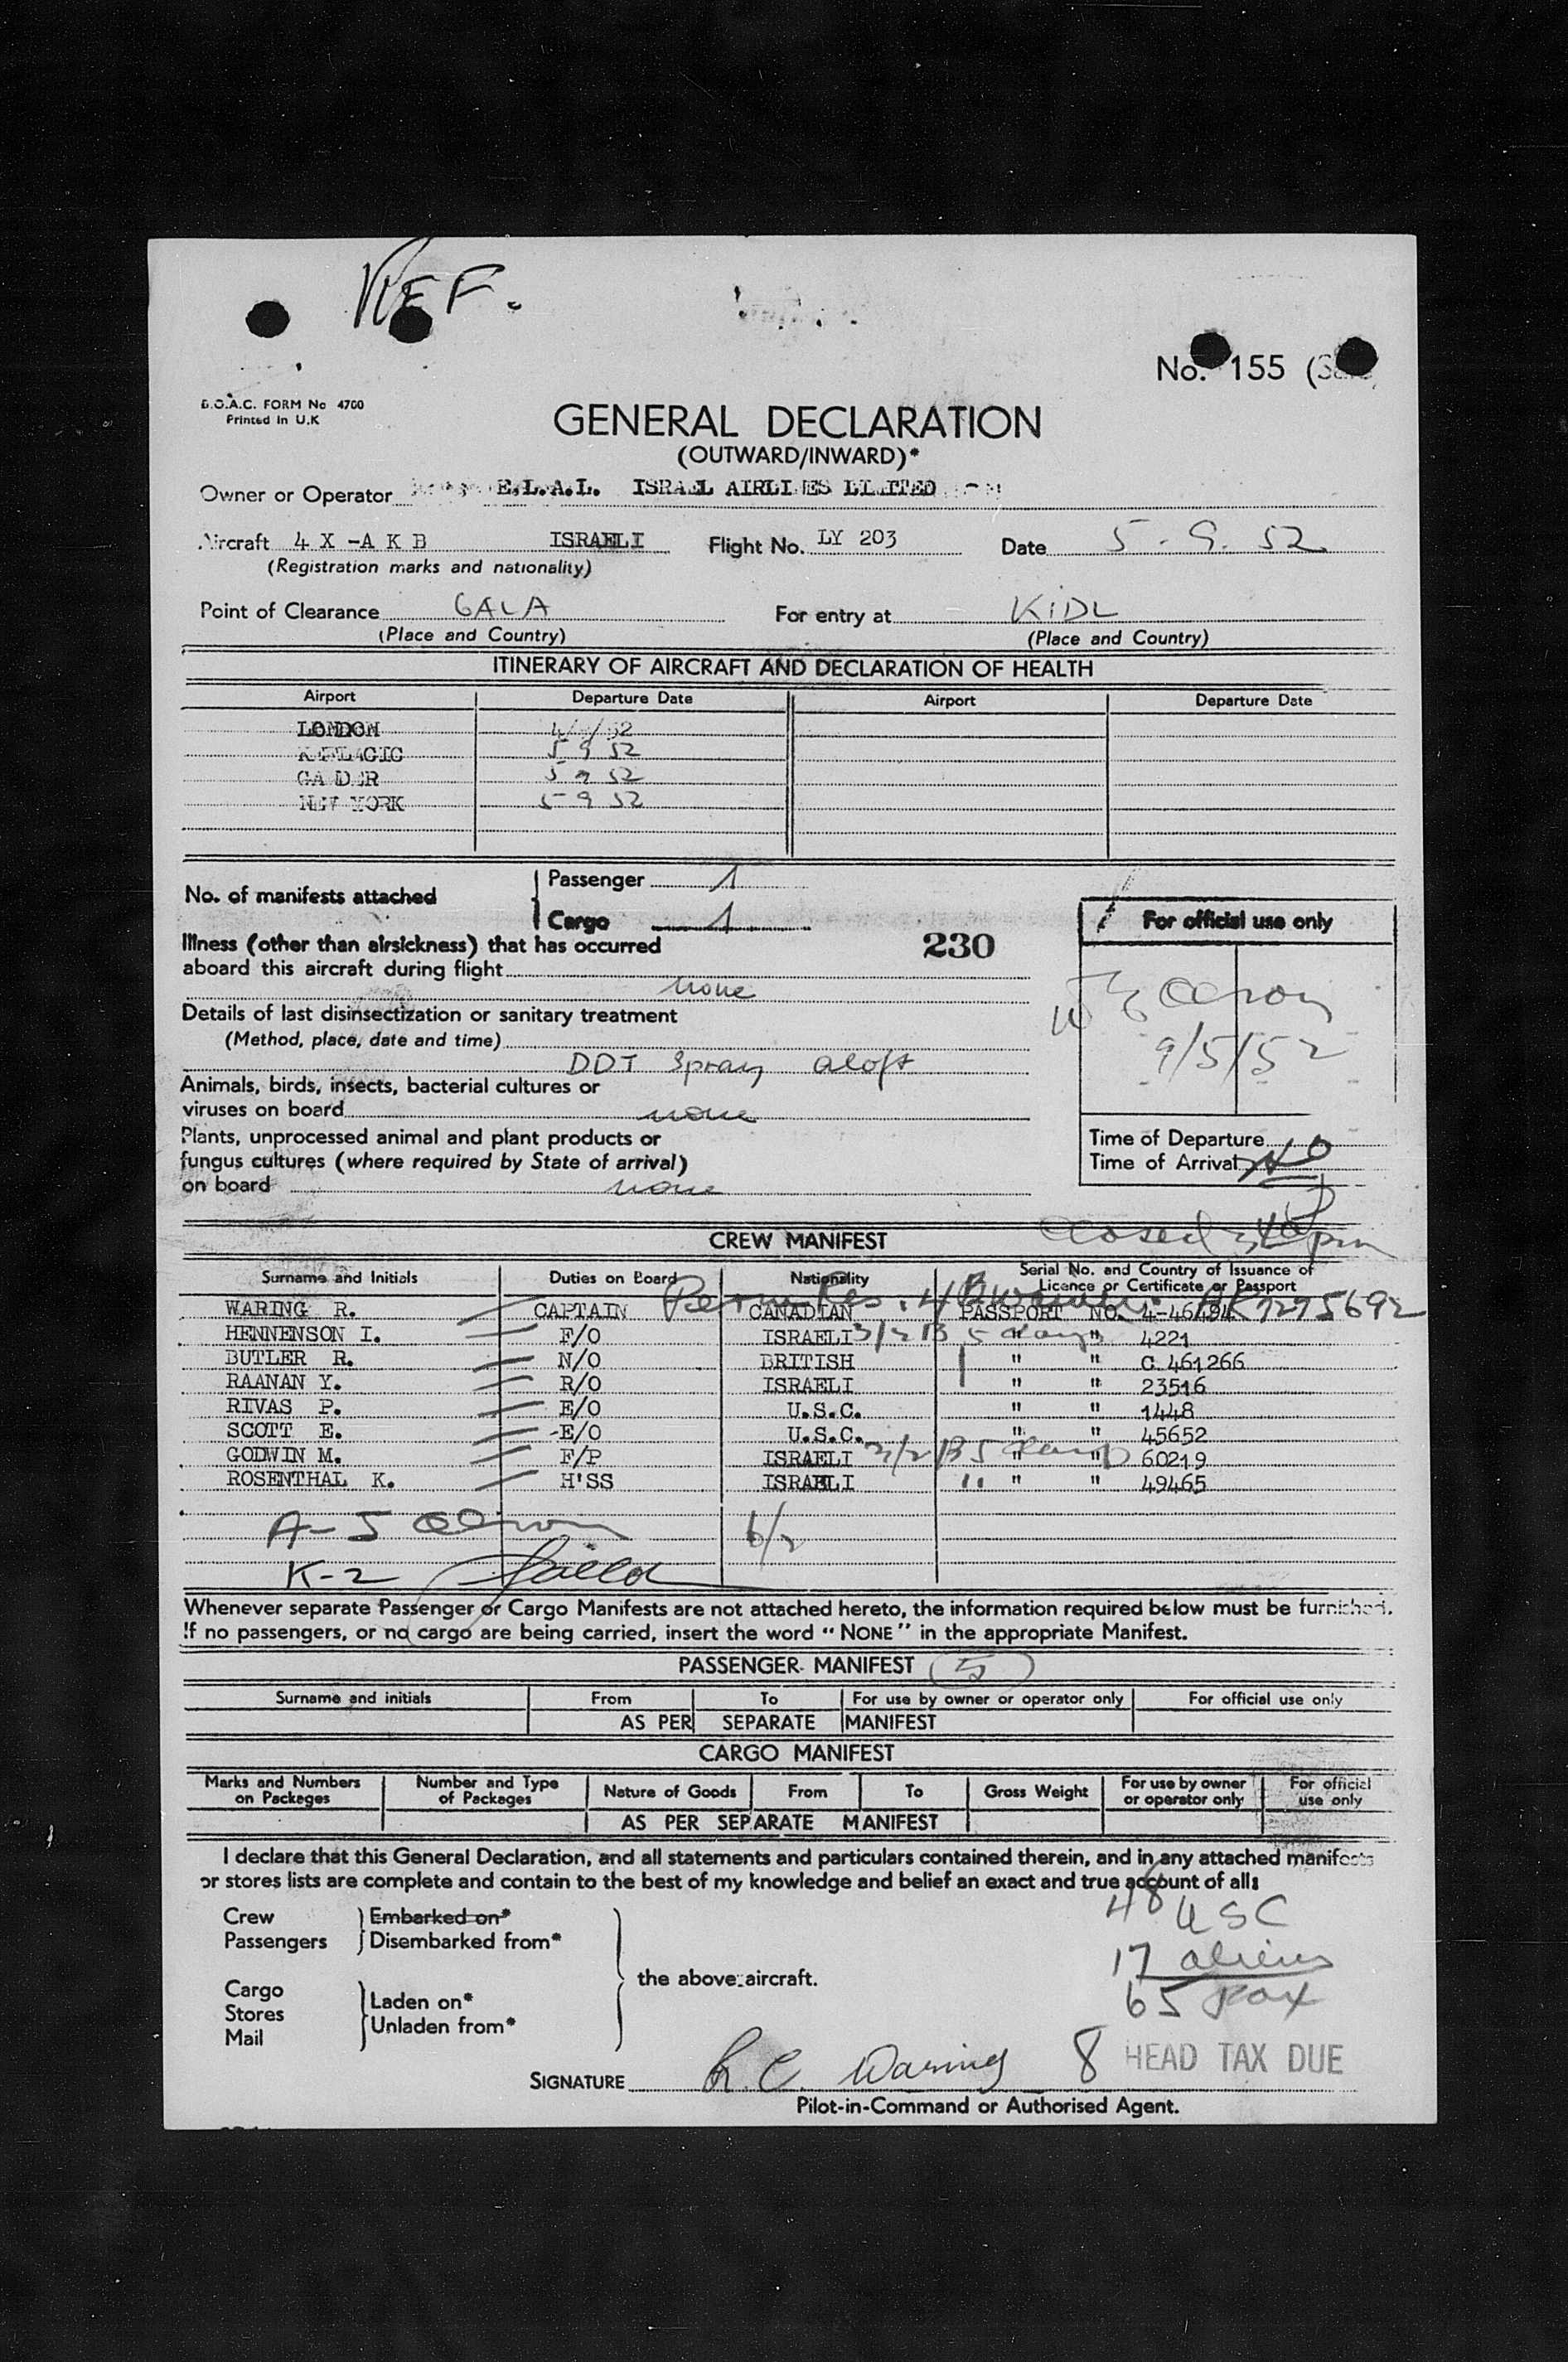 REF.
No. 155
B.O.A.C. FORM No 4700
Printed in U.K
GENERAL DECLARATION
(OUTWARD/INWARD)*
Owner or Operator E.L.A.L. ISRAEL AIRLINES LIMITED
Aircraft 4 X -A K B ISRAELI Flight No. LY 203 Date 5.9.52
(Registration marks and nationality)
Point of Clearance GALA For entry at KIDL
(Place and Country) (Place and Country)
ITINERARY OF AIRCRAFT AND DECLARATION OF HEALTH
Airport Departure Date Airport Departure Date
LONDON 4/9/52
KEFLAGIC 5 9 52
GANDER 5 9 52
NEW YORK 5 9 52
No. of manifests attached Passenger 1
Cargo 1
For official use only
Illness (other than airsickness) that has occurred 230
aboard this aircraft during flight
none
9/5/52
Details of last disinsectization or sanitary treatment
(Method, place, date and time)
DDT Spray aloft
Animals, birds, insects, bacterial cultures or
viruses on board none
Plants, unprocessed animal and plant products or
fungus cultures (where required by State of arrival)
on board none
Time of Departure
Time of Arrival
CREW MANIFEST closed pm
Surname and Initials Duties on Board Nationality Serial No. and Country of Issuance of
Licence or Certificate or Passport
Perm Res. 7275692
WARING R. CAPTAIN CANADIAN PASSPORT NO. 4-46494
HENNENSON I. F/O ISRAELI 3/2 B 5 days " " 4221
BUTLER R. N/O BRITISH " " C 461266
RAANAN Y. R/O ISRAELI " " 23516
RIVAS P. E/O U.S.C. " " 1448
SCOTT E. -E/O U.S.C. " " 45652
GODWIN M. F/P ISRAELI 3/2 B 5 days " " 60219
ROSENTHAL K. H'SS ISRAELI " " " 49465
A-5 6/2
K-2
Whenever separate Passenger or Cargo Manifests are not attached hereto, the information required below must be furnished.
If no passengers, or no cargo are being carried, insert the word "NONE" in the appropriate Manifest.
PASSENGER MANIFEST 5
Surname and initials From To For use by owner or operator only For official use only
AS PER SEPARATE MANIFEST
CARGO MANIFEST
Marks and Numbers on Packages Number and Type of Packages Nature of Goods From To Gross Weight For use by owner or operator only For official use only
AS PER SEPARATE MANIFEST
I declare that this General Declaration, and all statements and particulars contained therein, and in any attached manifests
or stores lists are complete and contain to the best of my knowledge and belief an exact and true account of all:
48 USC
17 aliens
65 pax
Crew Embarked on*
Passengers Disembarked from*
the above aircraft.
Cargo
Stores Laden on*
Mail Unladen from*
8 HEAD TAX DUE
SIGNATURE R. C. Waring
Pilot-in-Command or Authorised Agent.